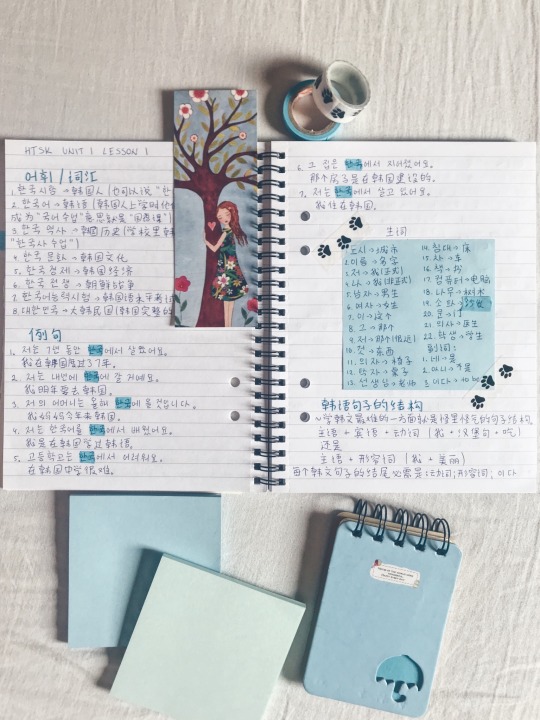 HTSK UNIT 1 LESSON 1
어휘 / 词汇
1. 한국사람 → 韩国人 (也可以说 "한
2. 한국어 → 韩语 (韩国人上学时
成为 "국어수업" 意思就是 "国语课")
3. 한국 역사 → 韩国历史 (学校里
"한국사 수업")
4. 한국 문화 → 韩国文化
5. 한국 경제 → 韩国经济
6. 한국 전쟁 → 朝鲜战争
7. 한국어능력시험 → 韩国语水平考试
8. 대한민국 → 大韩民国 (韩国完整的
例句
1. 저는 7년 동안 한국에서 살았어요.
我在韩国居过了7年.
2. 저는 내년에 한국에 갈 거예요.
我明年要去韩国.
3. 저의 어머니는 올해 한국에 올 것입니다.
我妈妈今年来韩国.
4. 저는 한국어를 한국에서 배웠어요.
我是在韩国学过韩语.
5. 고등학교는 한국에서 어려워요.
在韩国中学很难.
6. 그 집은 한국에서 지어졌어요.
那个房子是在韩国建设的.
7. 저는 한국에서 살고 있어요.
我住在韩国.
生词
1. 도시 → 城市
2. 이름 → 名字
3. 저 → 我 (正式)
4. 나 → 我 (非正式)
5. 남자 → 男生
6. 여자 → 女生
7. 이 → 这个
8. 그 → 那个
9. 저 → 那个 (很远)
10. 것 → 东西
11. 의자 → 椅子
12. 탁자 → 桌子
13. 선생님 → 老师
14. 침대 → 床
15. 차 → 车
16. 책 → 书
17. 컴퓨터 → 电脑
18. 나무 → 树木
19. 소파 → 沙发
20. 문 → 门
21. 의사 → 医生
22. 학생 → 学生
副词:
1. 네 → 是
2. 아니 → 不是
3. 이다 → to be
韩语句子的结构
~学韩文最难的一方面就是怪里怪气的句子结构
主语 + 宾语 + 动词 (我 + 汉堡包 + 吃)
还是
主语 + 形容词 (我 + 美丽)
每个韩文句子的结尾必需是: 动词; 形容词; 이다